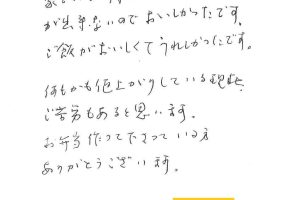 が出来ないのでおいしかったです。
ご飯がおいしくてうれしかったです。
何もかも値上がりしている現在、
ご苦労もあると思います。
お弁当作って下さっている方
ありがとうございます。